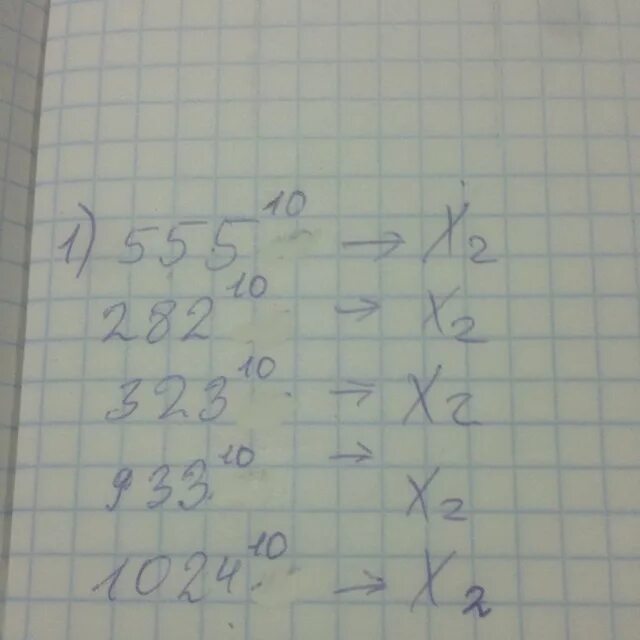 1) 555¹⁰ → X₂
282¹⁰ → X₂
323¹⁰ → X₂
933¹⁰ → X₂
1024¹⁰ → X₂